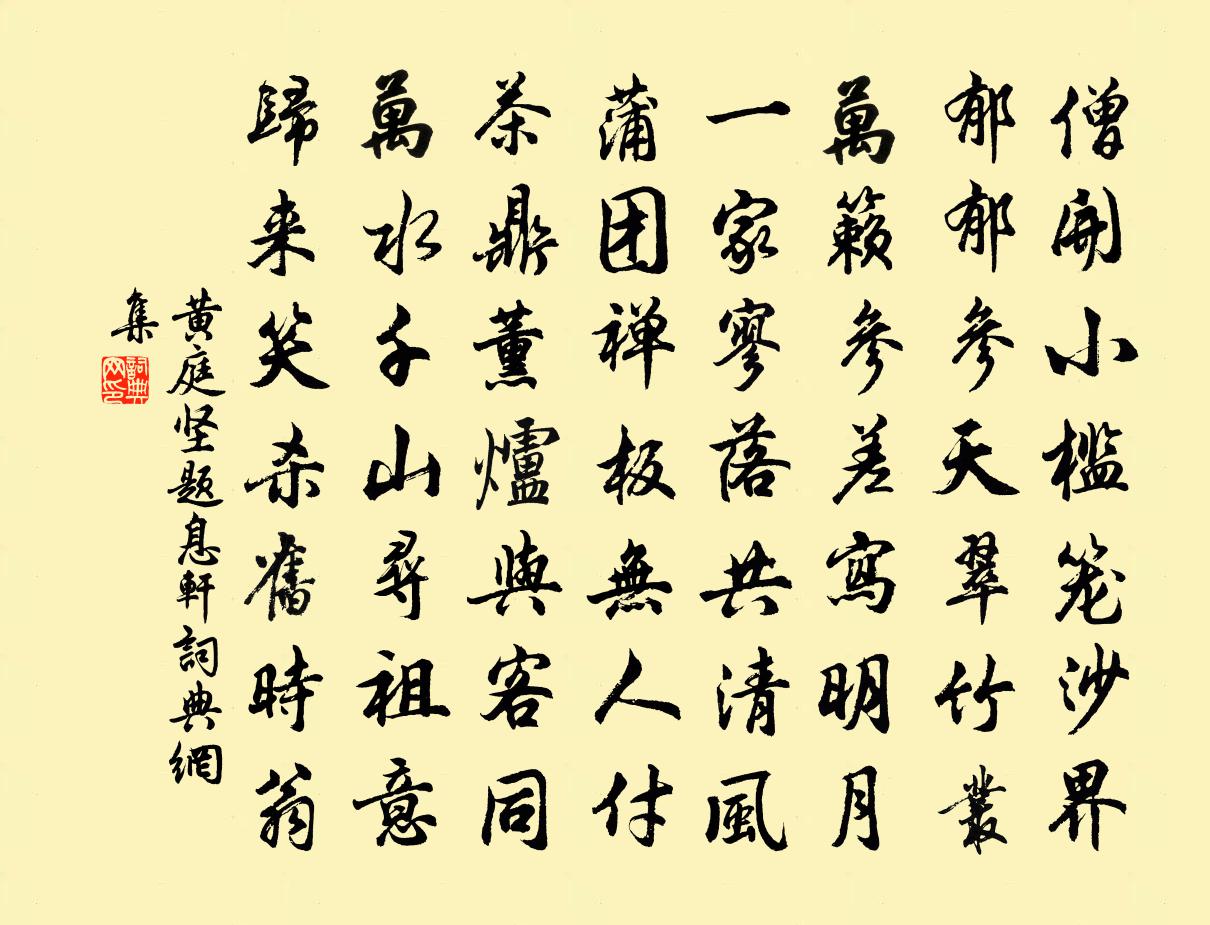 僧開小檻笼沙界
郁郁參天翠竹叢
萬籟參差寫明月
一家寥落共清風
蒲团禅板無人付
茶鼎薰爐與客同
萬水千山尋祖意
歸来笑杀舊時翁
黄庭坚題息軒詞典網
集
詞典
网印